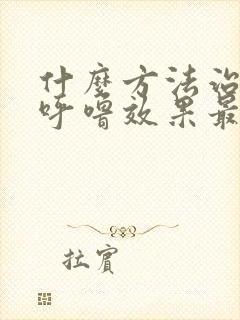 什麼方法治
呼嚕效果最
拉賓